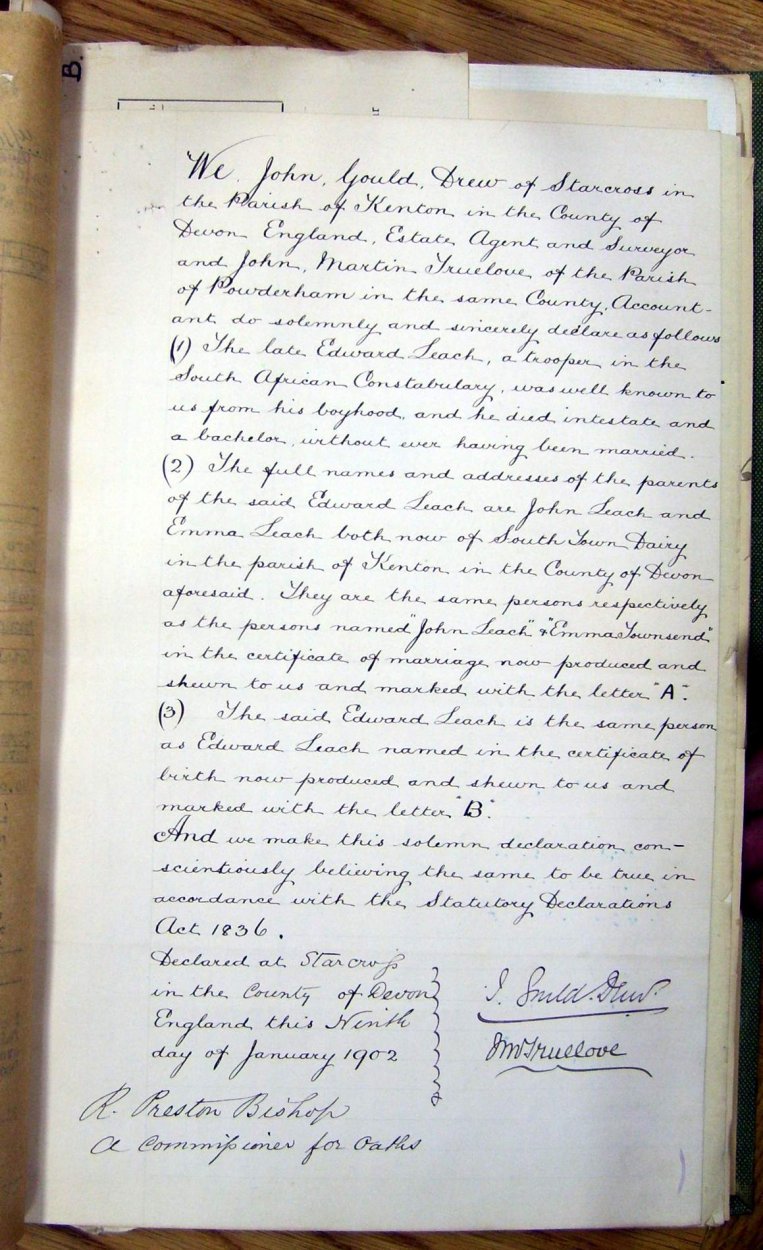 B.
We John, Gould, Drew of Starcross in
the Parish of Kenton in the County of
Devon England, Estate Agent and Surveyor
and John, Martin Truelove of the Parish
of Powderham in the same County, Account-
ant do solemnly and sincerely declare as follows
(1) The late Edward Leach, a trooper in the
South African Constabulary, was well known to
us from his boyhood, and he died intestate and
a bachelor, without ever having been married.
(2) The full names and addresses of the parents
of the said Edward Leach are John Leach and
Emma Leach both now of South Town Dairy
in the parish of Kenton in the County of Devon
aforesaid. They are the same persons respectively
as the persons named "John Leach" & "Emma Townsend"
in the certificate of marriage now produced and
shewn to us and marked with the letter "A".
(3) The said Edward Leach is the same person
as Edward Leach named in the certificate of
birth now produced and shewn to us and
marked with the letter "B".
And we make this solemn declaration con-
scientiously believing the same to be true in
accordance with the Statutory Declarations
Act 1836.
Declared at Starcross
in the County of Devon
England this Ninth
day of January 1902
J. Gould Drew.
JM Truelove
R. Preston Bishop
a Commissioner for Oaths